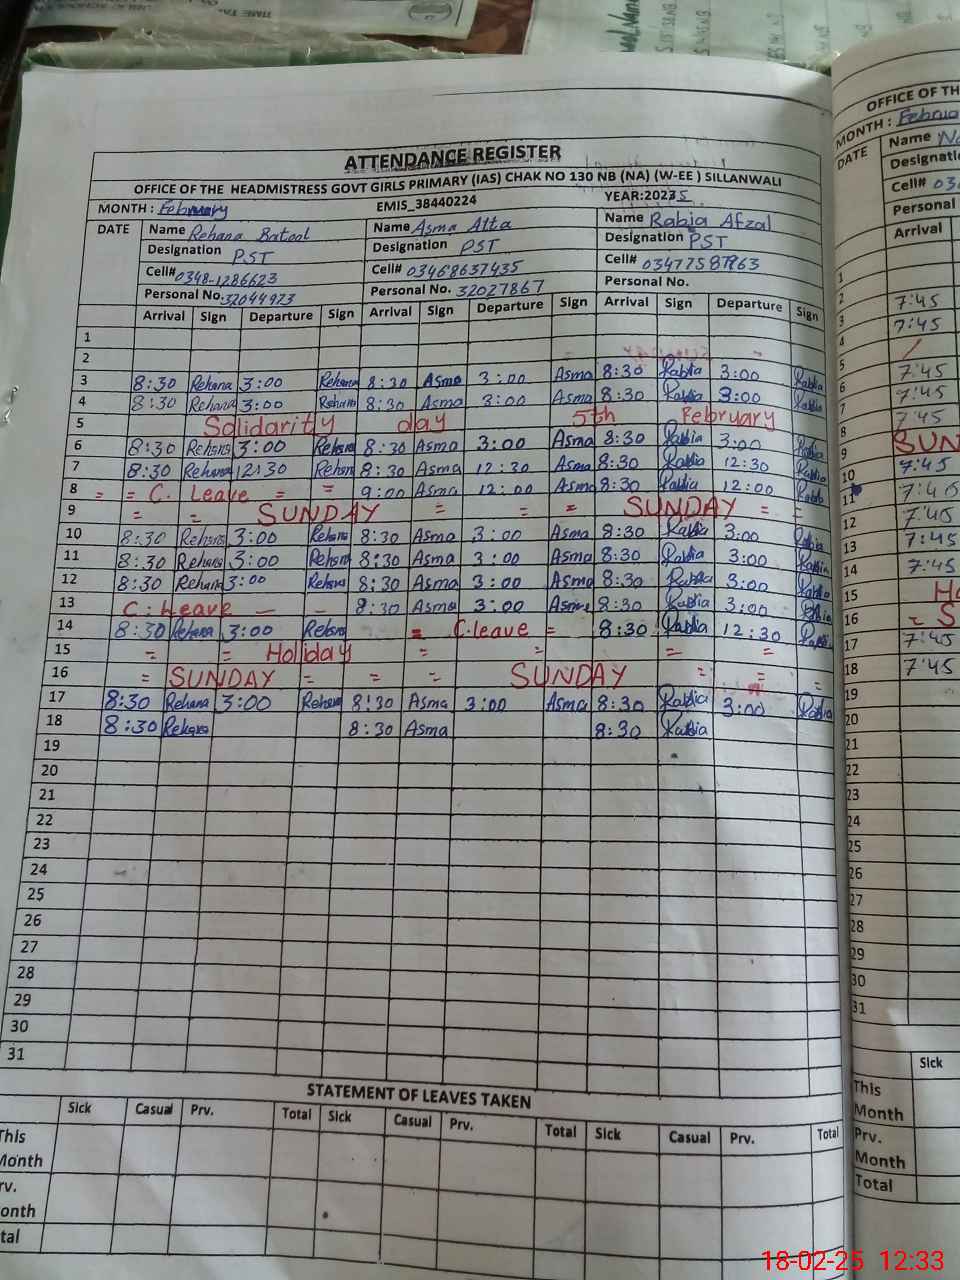 ATTENDANCE REGISTER
OFFICE OF THE HEADMISTRESS GOVT GIRLS PRIMARY (IAS) CHAK NO 130 NB (NA) (W-EE ) SILLANWALI
MONTH : February EMIS_38440224 YEAR:2025
DATE Name Rehana Batool Name Asma Atta Name Rabia Afzal
Designation PST Designation PST Designation PST
Cell# 0348-1286623 Cell# 03468637435 Cell# 03477587963
Personal No. 32044923 Personal No. 32027867 Personal No.
Arrival Sign Departure Sign Arrival Sign Departure Sign Arrival Sign Departure Sign
1
2
3 8:30 Rehana 3:00 Rehana 8:30 Asma 3:00 Asma 8:30 Rabia 3:00 Rabia
4 8:30 Rehana 3:00 Rehana 8:30 Asma 3:00 Asma 8:30 Rabia 3:00 Rabia
5 Solidarity day 5th February
6 8:30 Rehana 3:00 Rehana 8:30 Asma 3:00 Asma 8:30 Rabia 3:00 Rabia
7 8:30 Rehana 12:30 Rehana 8:30 Asma 12:30 Asma 8:30 Rabia 12:30 Rabia
8 = = C. Leave = = 9:00 Asma 12:00 Asma 8:30 Rabia 12:00 Rabia
9 = = SUNDAY = = = SUNDAY = =
10 8:30 Rehana 3:00 Rehana 8:30 Asma 3:00 Asma 8:30 Rabia 3:00 Rabia
11 8:30 Rehana 3:00 Rehana 8:30 Asma 3:00 Asma 8:30 Rabia 3:00 Rabia
12 8:30 Rehana 3:00 Rehana 8:30 Asma 3:00 Asma 8:30 Rabia 3:00 Rabia
13 C. Leave - - 8:30 Asma 3:00 Asma 8:30 Rabia 3:00 Rabia
14 8:30 Rehana 3:00 Rehana = C.leave = 8:30 Rabia 12:30 Rabia
15 = = Holiday = = = =
16 = SUNDAY = = = SUNDAY = = =
17 8:30 Rehana 3:00 Rehana 8:30 Asma 3:00 Asma 8:30 Rabia 3:00 Rabia
18 8:30 Rehana 8:30 Asma 8:30 Rabia
19
20
21
22
23
24
25
26
27
28
29
30
31
STATEMENT OF LEAVES TAKEN
Sick Casual Prv. Total Sick Casual Prv. Total Sick Casual Prv. Total
This Month
Prv. Month
Total
OFFICE OF TH
MONTH : Februa
DATE Name
Designati
Cell# 03
Personal
Arrival
1
2 7:45
3 7:45
4
5 7:45
6 7:45
7 7:45
8
9 SUN
10 7:45
11 7:45
12 7:45
13 7:45
14 7:45
15 Ho
16 = S
17 7:45
18 7:45
19
20
21
22
23
24
25
26
27
28
29
30
31
Sick
This Month
Prv. Month
Total
18-02-25 12:33